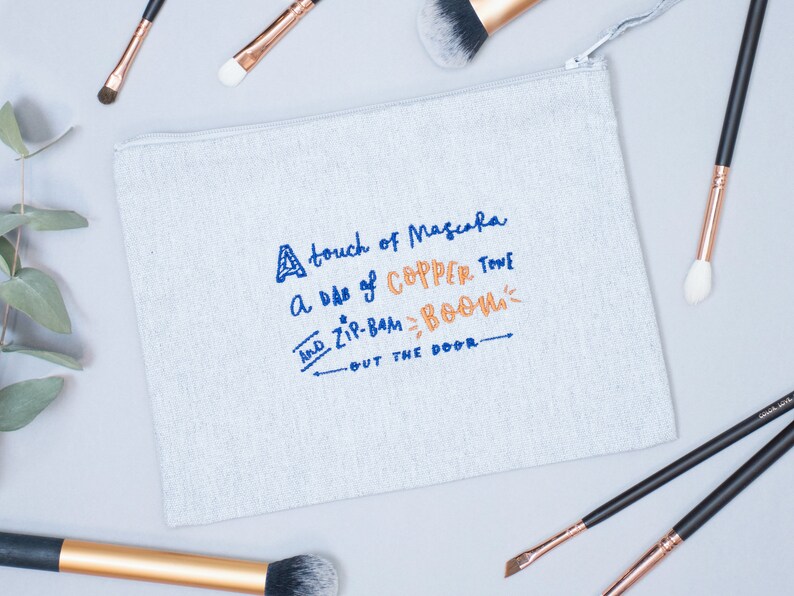 A touch of MascaRa
a DAB of COPPER TONE
AND ZIP-BAM BOOM
OUT THE DOOR
COLOR LOVE